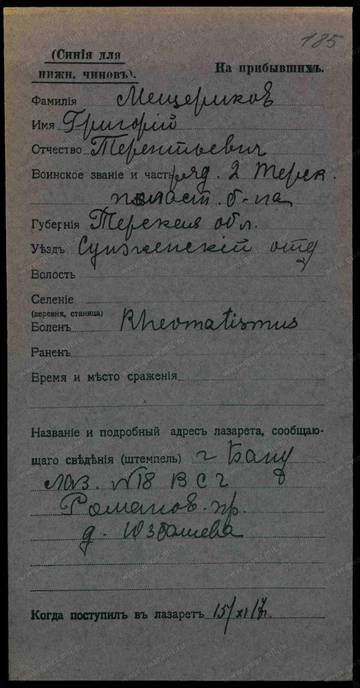 185
(Синія для
нижн. чиновъ).
На прибывшихъ.
Фамилія Мещериков
Имя Григорій
Отчество Терентьевич
Воинское званіе и часть ряд. 2 Терск.
пласт. б-на
Губернія Терская обл.
Уѣздъ Сунженскій отд
Волость
Селеніе
(деревня, станица)
Боленъ Rheomatismus
Раненъ
Время и мѣсто сраженія
Названіе и подробный адресъ лазарета, сообщаю-
щаго свѣдѣнія (штемпель) г Баку
Лаз. №18 ВСГ
Романов. пр.
д. Юзбашева
Когда поступилъ въ лазаретъ 15/XI